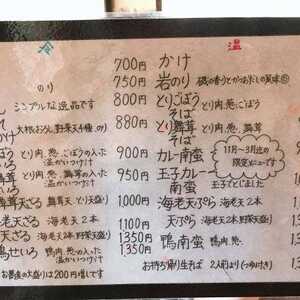 冷
のり
シンプルな逸品です
大根おろし、野菜天4種、のり
とり肉、葱、ごぼうの入った
温かいつけ汁
とり肉、葱、舞茸の入った
温かいつけ汁
舞茸天ざる 舞茸天(天盛り)
海老天2本
海老天2本(野菜天盛り)
鴨肉、葱の入った
温かいつけ汁
大盛りは200円増しです
温
700円 かけ
750円 岩のり 磯の香りとかつおだしの
800円 とりごぼうそば とり肉、葱、ごぼう
880円 とり舞茸そば とり肉、葱、舞茸
900円 カレー南蛮
950円 王子カレー南蛮 王子でとじました
11月〜3月迄の
限定メニューです
1000円 海老天ぷら 海老天2本
1350円 天ぷら 海老天2本(野菜天盛り)
1350円 鴨南蛮 鴨肉、葱
お持ち帰り生そば 2人前より(つゆ付き)